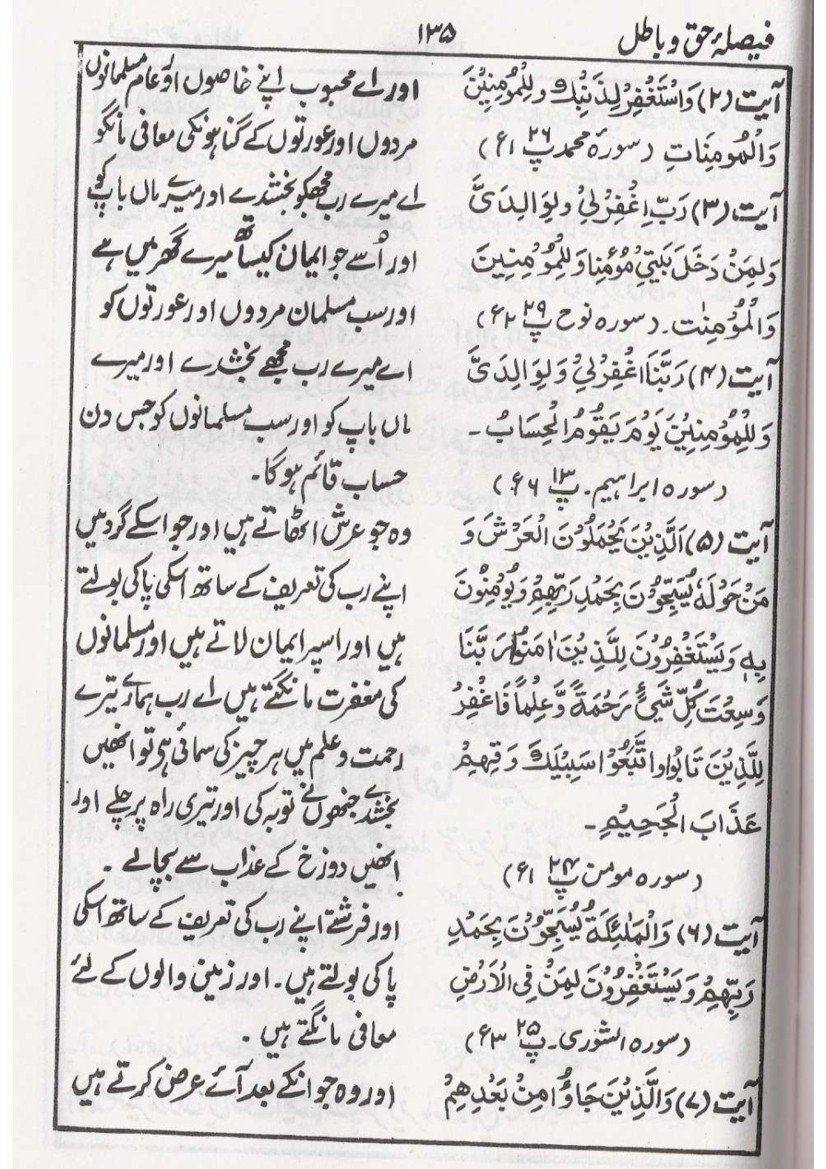 فیصلۂ حق و باطل
۱۳۵
آیت (۲) وَاسْتَغْفِرْ لِذَنْبِكَ وَلِلْمُؤْمِنِيْنَ
وَالْمُومِنَات (سورہ محمد پ ۲۶ ع ۶)
آیت (۳) رَبِّ اغْفِرْ لِيْ وَلِوَالِدَيَّ
وَلِمَنْ دَخَلَ بَيْتِيَ مُؤْمِنًا وَّلِلْمُؤْمِنِيْنَ
وَالْمُؤْمِنٰت۔ (سورہ نوح پ ۲۹
آیت (۴) رَبَّنَا اغْفِرْ لِيْ وَلِوَالِدَيَّ
وَلِلْمُؤْمِنِيْنَ يَوْمَ يَقُوْمُ الْحِسَابُ۔
(سورہ ابراہیم۔ پ ۱۳
آیت (۵) اَلَّذِيْنَ يَحْمِلُوْنَ الْعَرْشَ وَ
مَنْ حَوْلَهٗ يُسَبِّحُوْنَ بِحَمْدِ رَبِّهِمْ وَيُؤْمِنُوْنَ
بِهٖ وَيَسْتَغْفِرُوْنَ لِلَّذِيْنَ اٰمَنُوْا رَبَّنَا
وَسِعْتَ كُلَّ شَيْءٍ رَحْمَةً وَّعِلْمًا فَاغْفِرْ
لِلَّذِيْنَ تَابُوْا وَاتَّبَعُوْا سَبِيْلَكَ وَقِهِمْ
عَذَابَ الْجَحِيْمِ۔
(سورہ مومن پ ۲۴
آیت (۶) وَالْمَلٰئِكَةُ يُسَبِّحُوْنَ بِحَمْدِ
رَبِّهِمْ وَيَسْتَغْفِرُوْنَ لِمَنْ فِی الْاَرْضِ
(سورہ الشوری۔ پ ۲۵
آیت (۷) وَالَّذِيْنَ جَاؤُا مِنْ بَعْدِهِمْ
اور اے محبوب اپنے خاصوں اور عام مسلمانوں
مردوں اور عورتوں کے گناہونکی معافی مانگو
اے میرے رب مجھکو بخشدے اور میرے ماں باپ کو
اور اُسے جو ایمان کیساتھ میرے گھر میں ہے
اور سب مسلمان مردوں اور عورتوں کو
اے میرے رب مجھے بخشدے اور میرے
ماں باپ کو اور سب مسلمانوں کو جس دن
حساب قائم ہوگا۔
وہ جو عرش اٹھاتے ہیں اور جو اسکے گرد ہیں
اپنے رب کی تعریف کے ساتھ اسکی پاکی بولتے
ہیں اور اسپر ایمان لاتے ہیں اور مسلمانوں
کی مغفرت مانگتے ہیں اے رب ہمارے تیرے
رحمت و علم میں ہر چیز کی سمائی ہی تو انھیں
بخشدے جنھوں نے توبہ کی اور تیری راہ پر چلے اور
انھیں دوزخ کے عذاب سے بچالے۔
اور فرشتے اپنے رب کی تعریف کے ساتھ اسکی
پاکی بولتے ہیں۔ اور زمین والوں کے لئے
معافی مانگتے ہیں۔
اور وہ جو انکے بعد آئے عرض کرتے ہیں